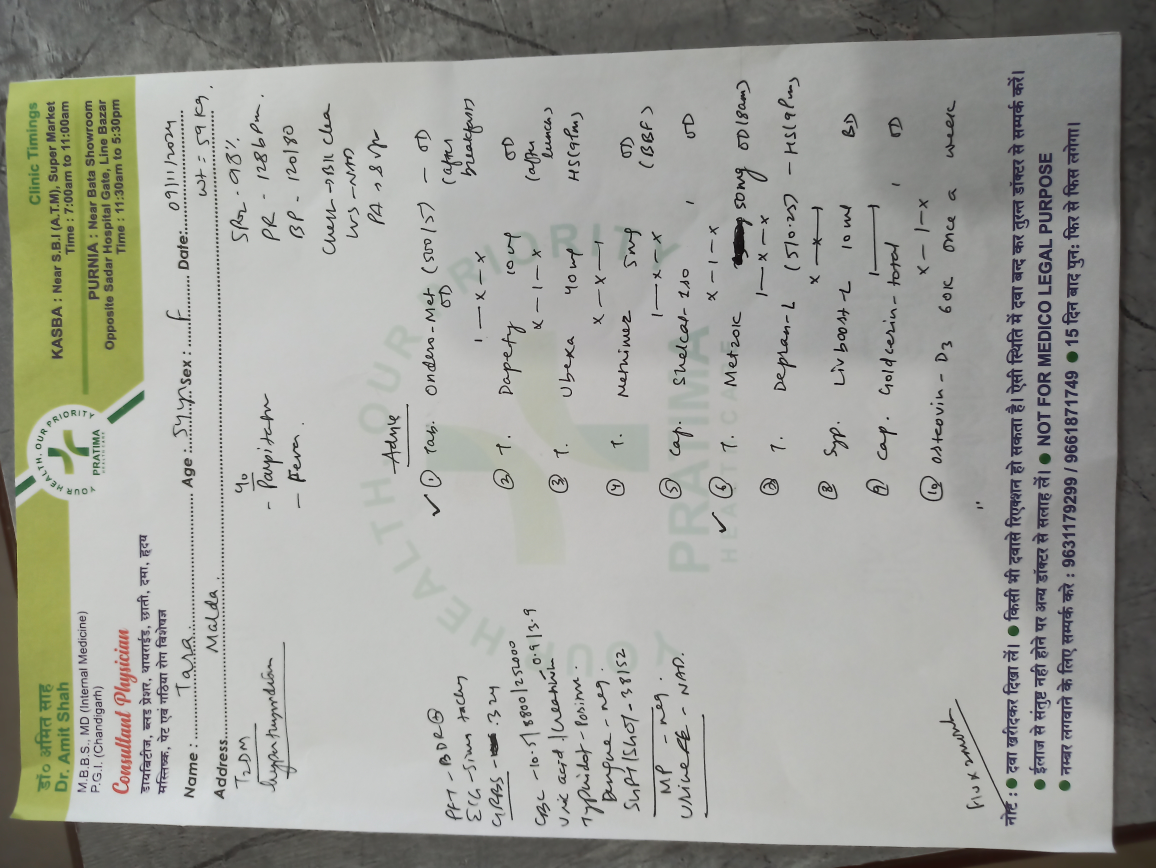 डॉ० अमित साह
Dr. Amit Shah
M.B.B.S., MD (Internal Medicine)
P.G.I. (Chandigarh)
Consultant Physician
डायबिटीज, ब्लड प्रेशर, थायराईड, छाती, दमा, हृदय
मस्तिष्क, पेट एवं गठिया रोग विशेषज्ञ
YOUR HEALTH, OUR PRIORITY
PRATIMA
Clinic Timings
KASBA : Near S.B.I (A.T.M), Super Market
Time : 7:00am to 11:00am
PURNIA : Near Bata Showroom
Opposite Sadar Hospital Gate, Line Bazar
Time : 11:30am to 5:30pm
Name : Tara Age : 54yrs Sex : F Date: 09/11/2024
Address Malda wt = 59 kg.
T2DM
SPO2 - 98%
PR - 128 bpm.
BP - 120/80
Chest → B/L clea
CVS - NAD
PA →
c/o
- Palpitatn
- Fever.
PFT - BDR
ECG - Sinus tachy
GRBS - 324
CBC - 10.5/8800/252000
Uric acid/Creatinin 0.9/3.9
Typhidot - Positive.
Dengue - neg.
SGPT/SGOT - 38/52
MP - neg.
Urine RE - NAD.
Advice
① Tab. Ondero-Met (500/5) - OD
1 - x - x (after breakfast)
② T. Dapety 10 mg OD
x - 1 - x (after lunch)
③ T. Ubexa 40 mg HS (9pm)
x - x - 1
④ T. 5 mg OD
1 - x - x (BBF)
⑤ Cap. Shelcal-250 , OD
x - 1 - x
⑥ T. Metzok 50mg OD (8am)
1 - x - x
⑦ T. Depran-L (5/0.25) - HS (9pm)
x - x - 1
⑧ Syp. Livboost-L 10 ml BD
1 - 1
⑨ Cap. Goldcerin-total , OD
x - 1 - x
⑩ Osteovin-D3 60K once a week
YOUR HEALTH, OUR PRIORITY
PRATIMA
HEALTHCARE
नोट : ● दवा खरीदकर दिखा लें। ● किसी भी दवासे रिएक्शन हो सकता है। ऐसी स्थिति में दवा बन्द कर तुरन्त डॉक्टर से सम्पर्क करें।
● ईलाज से संतुष्ट नही होने पर अन्य डॉक्टर से सलाह लें। ● NOT FOR MEDICO LEGAL PURPOSE
● नम्बर लगवाने के लिए सम्पर्क करे : 9631179299 / 9661871749 ● 15 दिन बाद पुन: फिर से फिस लगेगा।